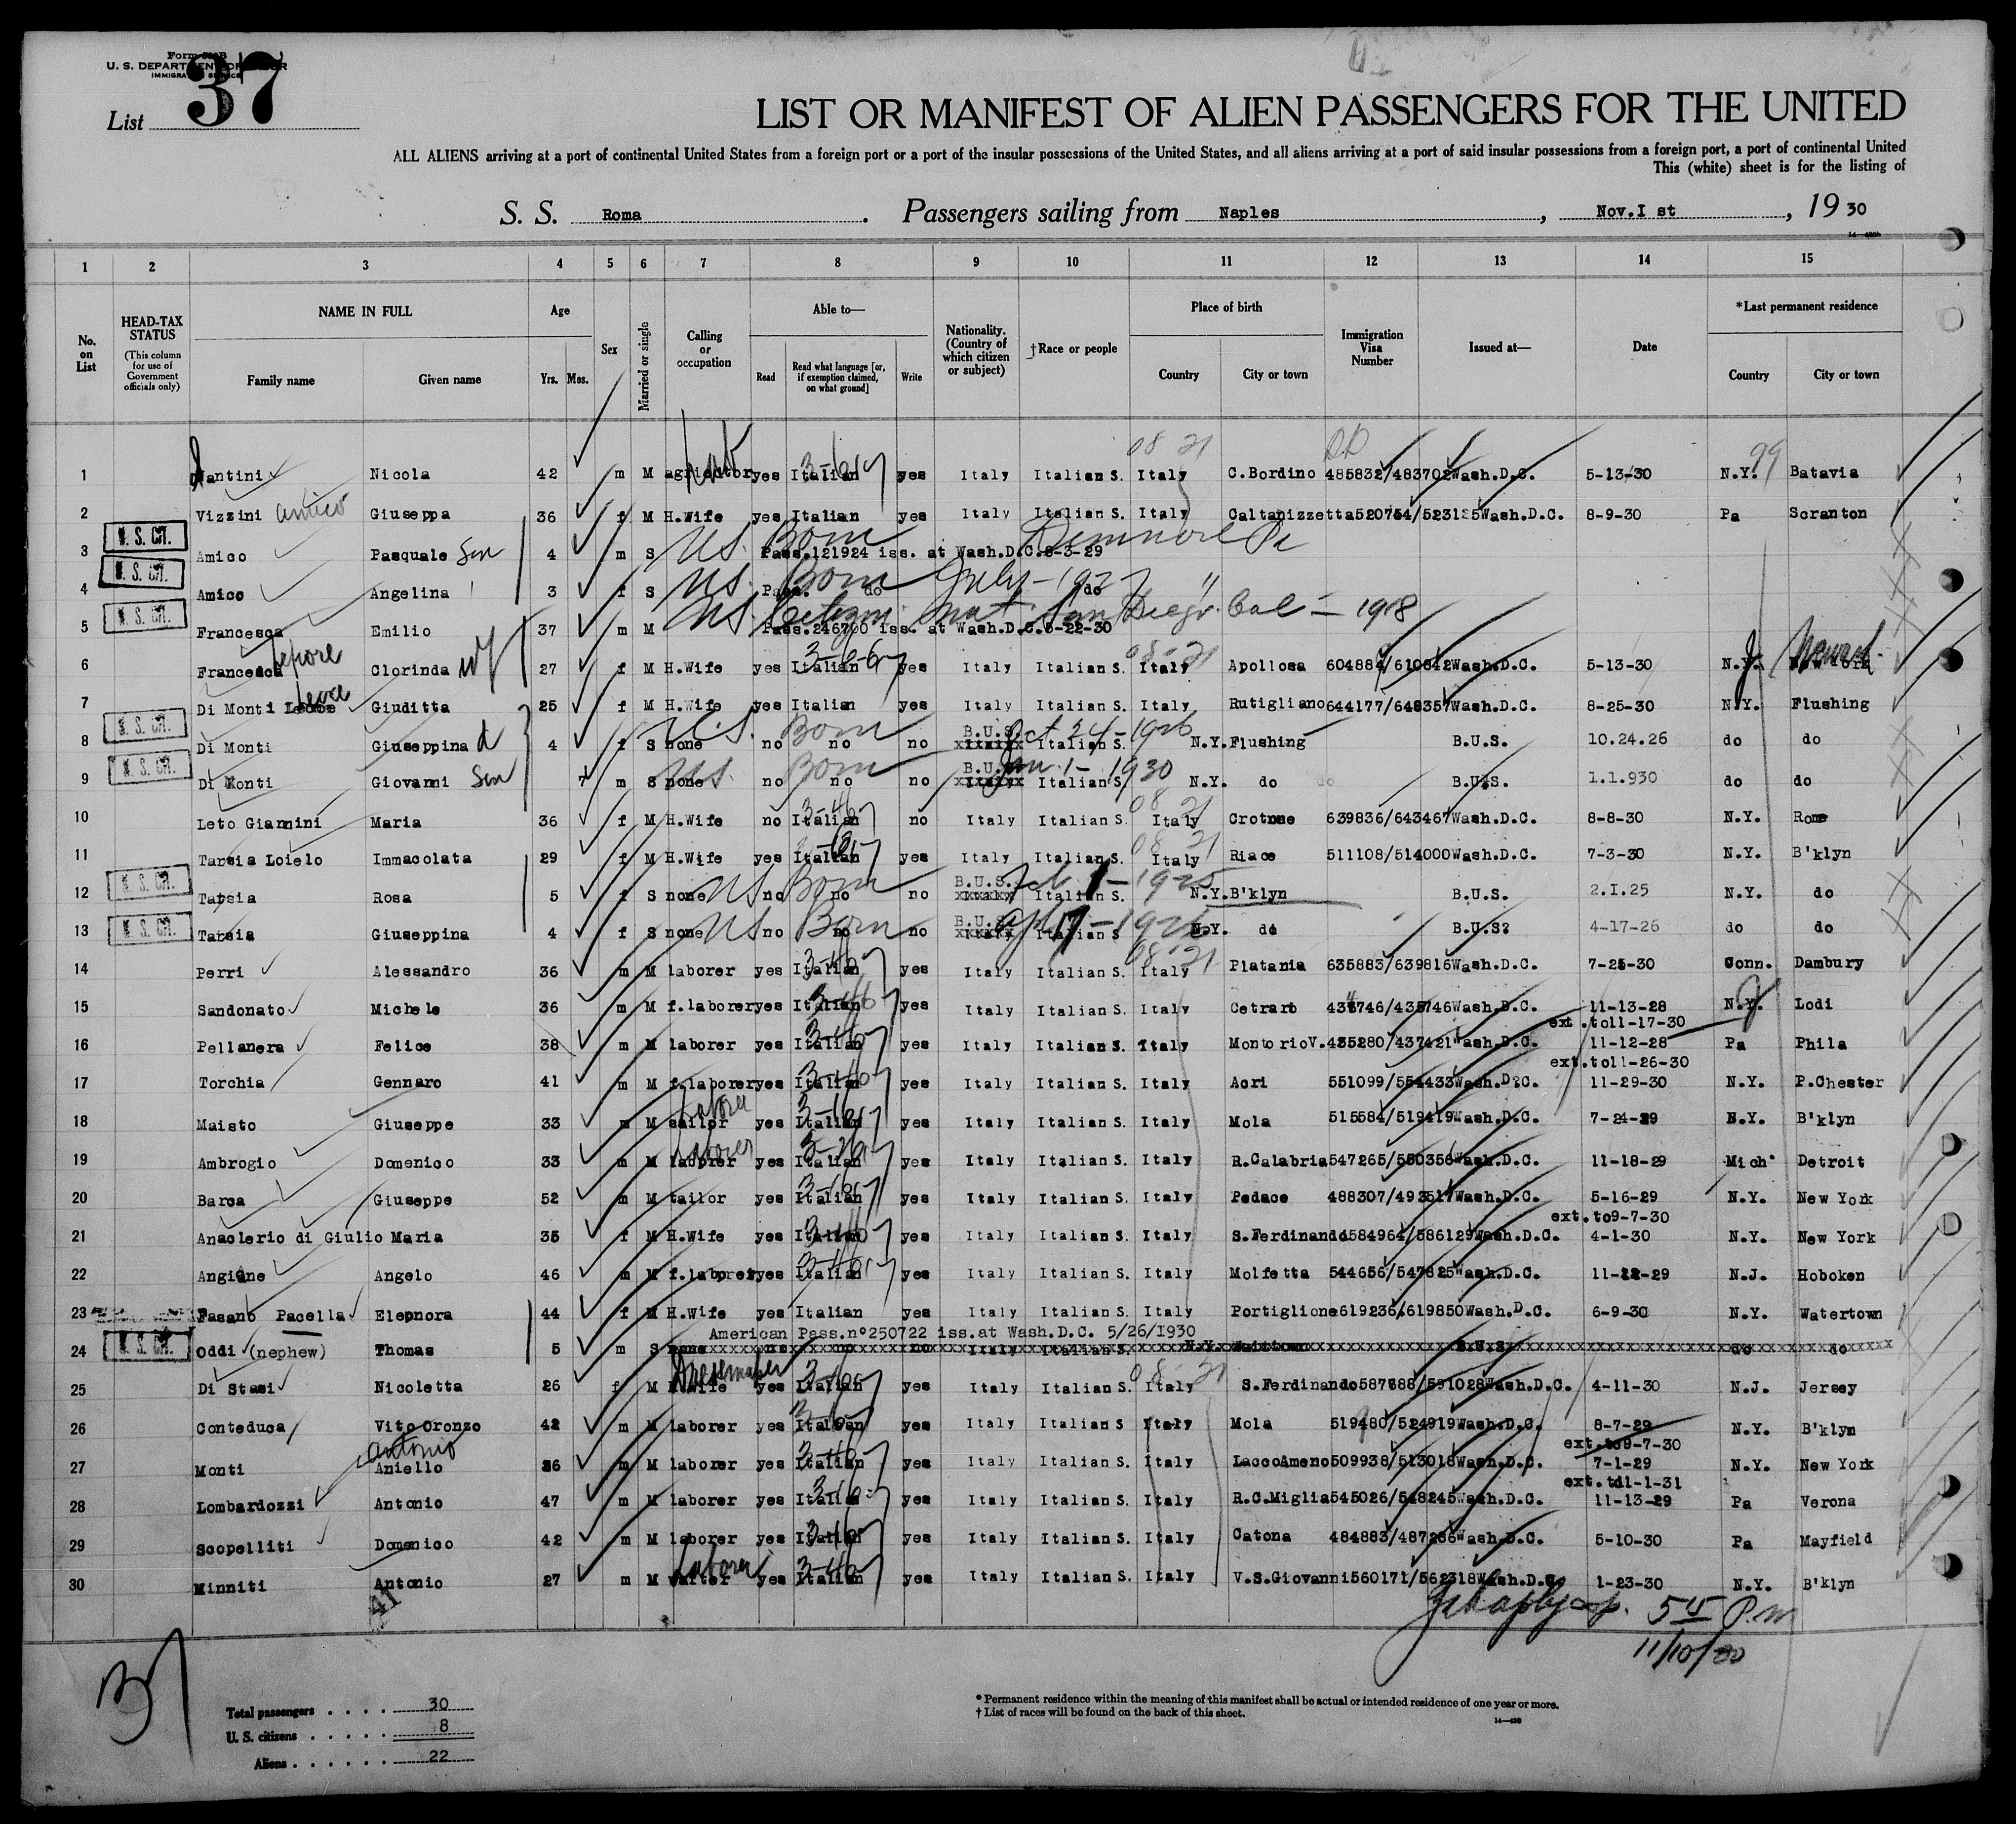 Form 500B
U. S. DEPARTMENT OF LABOR
IMMIGRATION SERVICE
List 37
LIST OR MANIFEST OF ALIEN PASSENGERS FOR THE UNITED
ALL ALIENS arriving at a port of continental United States from a foreign port or a port of the insular possessions of the United States, and all aliens arriving at a port of said insular possessions from a foreign port, a port of continental United
This (white) sheet is for the listing of
S. S. Roma . Passengers sailing from Naples , Nov.I st , 19 30
1 2 3 4 5 6 7 8 9 10 11 12 13 14 15
No. on List
HEAD-TAX STATUS (This column for use of Government officials only)
NAME IN FULL Family name Given name
Age Yrs. Mos.
Sex
Married or single
Calling or occupation
Able to— Read Read what language [or, if exemption claimed, on what ground] Write
Nationality. (Country of which citizen or subject)
†Race or people
Place of birth Country City or town
Immigration Visa Number
Issued at—
Date
*Last permanent residence Country City or town
1 antini Nicola 42 m M yes Italian yes Italy Italian S. Italy C.Bordino 485832/483702 Wash.D.C. 5-13-30 N.Y. Batavia
2 Vizzini Amico Giuseppa 36 f M H.Wife yes Italian yes Italy Italian S. Italy Caltanizzetta 520754/ Wash.D.C. 8-9-30 Pa Scranton
3 U. S. CIT. Amico Pasquale Son 4 m S US. Born Pass.121924 iss. at Wash.D.C.8-3-29 Dunmore Pa
4 U. S. CIT. Amico Angelina 3 f S US. Born July - 1927 Pass. do do "
5 U. S. CIT. Francesca Emilio 37 m M US. Citizen nat. San Diego Cal - 1918 Pass.246700 iss. at Wash.D.C.5-22-30
6 Francesca Lepore Clorinda wf 27 f M H.Wife yes Italian yes Italy Italian S. Italy Apollosa 604884/610842 Wash.D.C. 5-13-30 N.J. Newark
7 Di Monti Lecce Giuditta 25 f M H.Wife yes Italian yes Italy Italian S. Italy Rutigliano 644177/648357 Wash.D.C. 8-25-30 N.Y. Flushing
8 U. S. CIT. Di Monti Giuseppina d 4 f S none no no no U.S. Born Oct 24-1926 B.U.S. Italian S. N.Y. Flushing B.U.S. 10.24.26 do do
9 U. S. CIT. Di Monti Giovanni Son 7 m S none no no no US. Born Jan 1- 1930 B.U.S. Italian S. N.Y. do B.U.S. 1.1.930 do do
10 Leto Giannini Maria 36 f M H.Wife no Italian no Italy Italian S. Italy Crotone 639836/643467 Wash.D.C. 8-8-30 N.Y. Rome
11 Tarsia Loielo Immacolata 29 f M H.Wife yes Italian yes Italy Italian S. Italy Riace 511108/514000 Wash.D.C. 7-3-30 N.Y. B'klyn
12 U. S. CIT. Tarsia Rosa 5 f S none no no no US Born Feb 1-1925 B.U.S. Italian S. N.Y. B'klyn B.U.S. 2.I.25 N.Y. do
13 U. S. CIT. Tarsia Giuseppina 4 f S none no no no US Born Apl 17-1926 B.U.S. Italian S N.Y. do B.U.S? 4-17-26 do do
14 Perri Alessandro 36 m M laborer yes Italian yes Italy Italian S. Italy Platania 635883/639816 Wash.D.C. 7-25-30 Conn. Dambury
15 Sandonato Michele 36 m M f.laborer yes Italian yes Italy Italian S. Italy Cetraro Wash.D.C. 11-13-28 ext.to11-17-30 N.J. Lodi
16 Pellanera Felice 38 m M laborer yes Italian yes Italy Italian S. Italy MontorioV. 435280/437421 Wash.D.C. 11-12-28 ext.to11-26-30 Pa Phila
17 Torchia Gennaro 41 m M f.laborer yes Italian yes Italy Italian S. Italy Acri 551099/554433 Wash.D.C. 11-29-30 N.Y. P.Chester
18 Maisto Giuseppe 33 m M sailor Laborer yes Italian yes Italy Italian S. Italy Mola 515584/519419 Wash.D.C. 7-24-29 N.Y. B'klyn
19 Ambrogio Domenico 33 m M laborer Laborer yes Italian yes Italy Italian S. Italy R.Calabria 547265/550356 Wash.D.C. 11-18-29 Mich. Detroit
20 Barca Giuseppe 52 m M tailor yes Italian yes Italy Italian S. Italy Pedace 488307/493517 Wash.D.C. 5-16-29 ext.to9-7-30 N.Y. New York
21 Anaclerio di Giulio Maria 35 f M H.Wife yes Italian yes Italy Italian S. Italy S.Ferdinando 584964/586129 Wash.D.C. 4-1-30 N.Y. New York
22 Angione Angelo 46 m M f.laborer yes Italian yes Italy Italian S. Italy Molfetta 544656/547825 Wash.D.C. 11-22-29 N.J. Hoboken
23 Fasano Pacella Eleonora 44 f M H.Wife yes Italian yes Italy Italian S. Italy Portiglione 619236/619850 Wash.D.C. 6-9-30 N.Y. Watertown
American Pass.n°250722 iss.at Wash.D.C. 5/26/1930
24 U. S. CIT. Oddi (nephew) Thomas 5 m S none no no no Italy Italian S. N.Y. B.U.S. do do
25 Di Stasi Nicoletta 26 f M H.Wife Dressmaker yes Italian yes Italy Italian S. Italy S.Ferdinando 587688/591028 Wash.D.C. 4-11-30 N.J. Jersey
26 Conteduca Vito Oronzo 42 m M laborer yes Italian yes Italy Italian S Italy Mola 519480/524919 Wash.D.C. 8-7-29 ext.to9-7-30 N.Y. B'klyn
27 Monti Aniello Antonio 36 m M laborer yes Italian yes Italy Italian S. Italy LaccoAmeno 509938/513018 Wash.D.C. 7-1-29 ext.to11-1-31 N.Y. New York
28 Lombardozzi Antonio 47 m M laborer yes Italian yes Italy Italian S. Italy R.C.Miglia 545026/548245 Wash.D.C. 11-13-29 Pa Verona
29 Scopelliti Domenico 42 m M laborer yes Italian yes Italy Italian S. Italy Catona 484883/487286 Wash.D.C. 5-10-30 Pa Mayfield
30 Minniti Antonio 27 m M waiter Laborer yes Italian yes Italy Italian S. Italy V.S.Giovanni 560171/562318 Wash.D.C. 1-23-30 N.Y. B'klyn
41
5 15 P.m
11/10/30
Total passengers 30
U. S. citizens 8
Aliens 22
* Permanent residence within the meaning of this manifest shall be actual or intended residence of one year or more.
† List of races will be found on the back of this sheet.